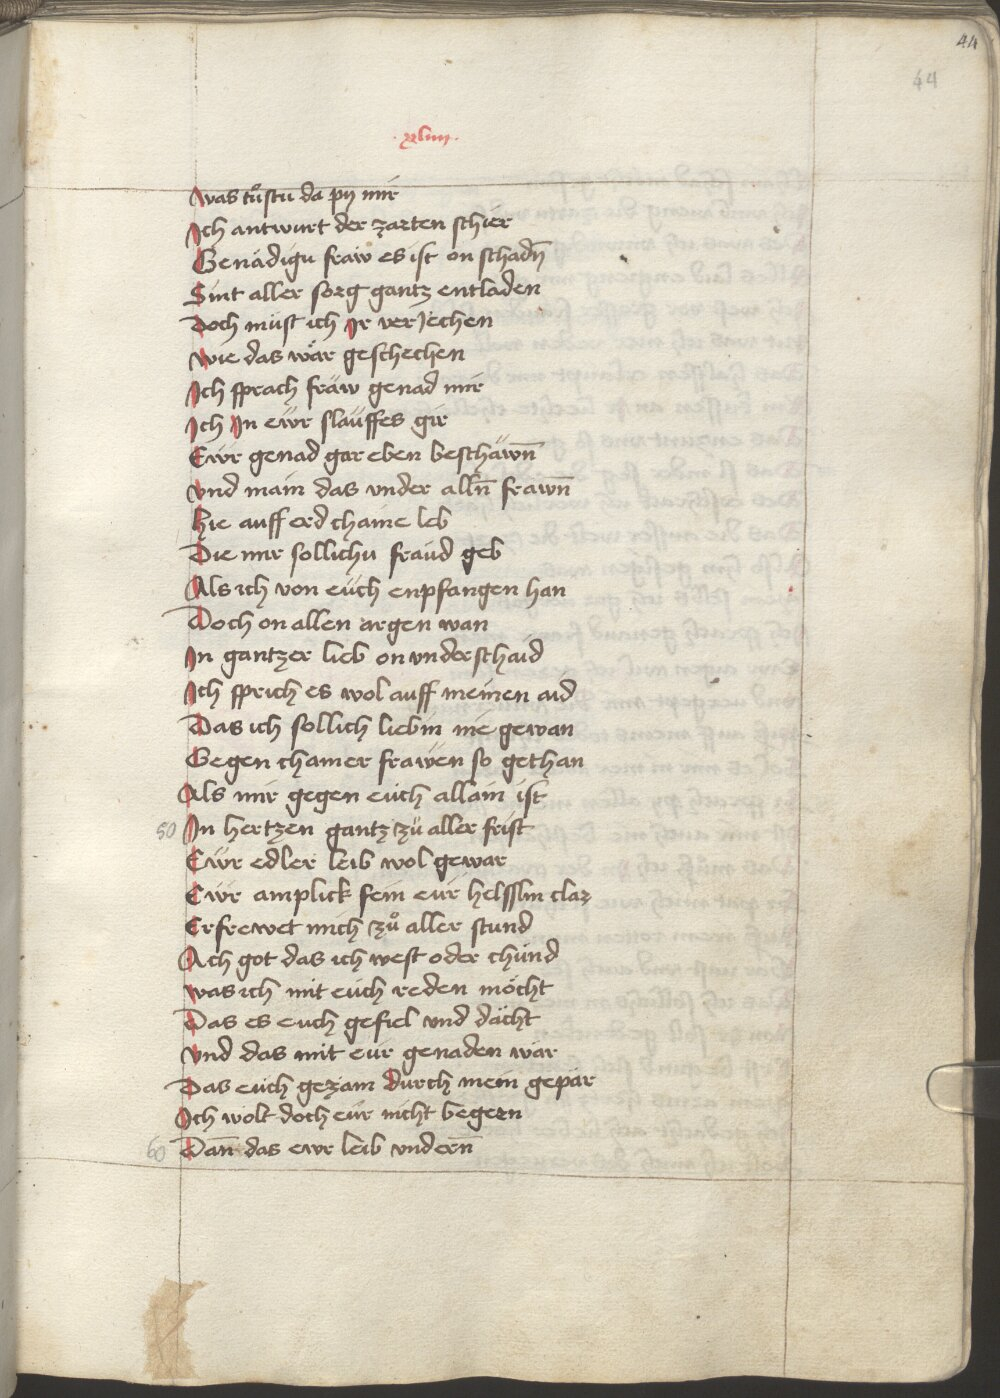 44
44
· xliiij ·
Was tuͦstu da pÿ mir
Ich antwurt der zarten schier
Genädigu fraw es ist on schadn̄
Sint aller sorg gantz entladen
Doch müst ich Ir verJechen
Wie das wär geschechen
Ich sprach fräw genad mir
Ich In ewr slauffes gir
Ewr genad gar eben beschäwn̄
Vnd main das vnder alln̄ frawn̄
Hie auff erd chaine leb
Die mir sollichu fräud geb
Als ich von eüch enpfangen han
Doch on allen argen wan
In gantzer lieb on vnderschaid
Ich sprich es wol auff meinen aid
Das ich sollich liebin nie gewan
Gegen chainer frawen so gethan
Als mir gegen eüch allain ist
50 In hertzen gantz zuͦ aller frist
Ewr edler leib wol gewar
Ewr amplick fein eür helsslin clar
Erfrewet mich zuͦ aller stund
Ach got das ich west oder chünd
Was ich mit euch reden möcht
Das es euch gefiel vnd dächt
Vnd das mit eür genaden wär
Das euch gezäm durch mein gepär
Ich wolt doch eür nicht begern
60 Dan̄ das ewr leib vndern̄